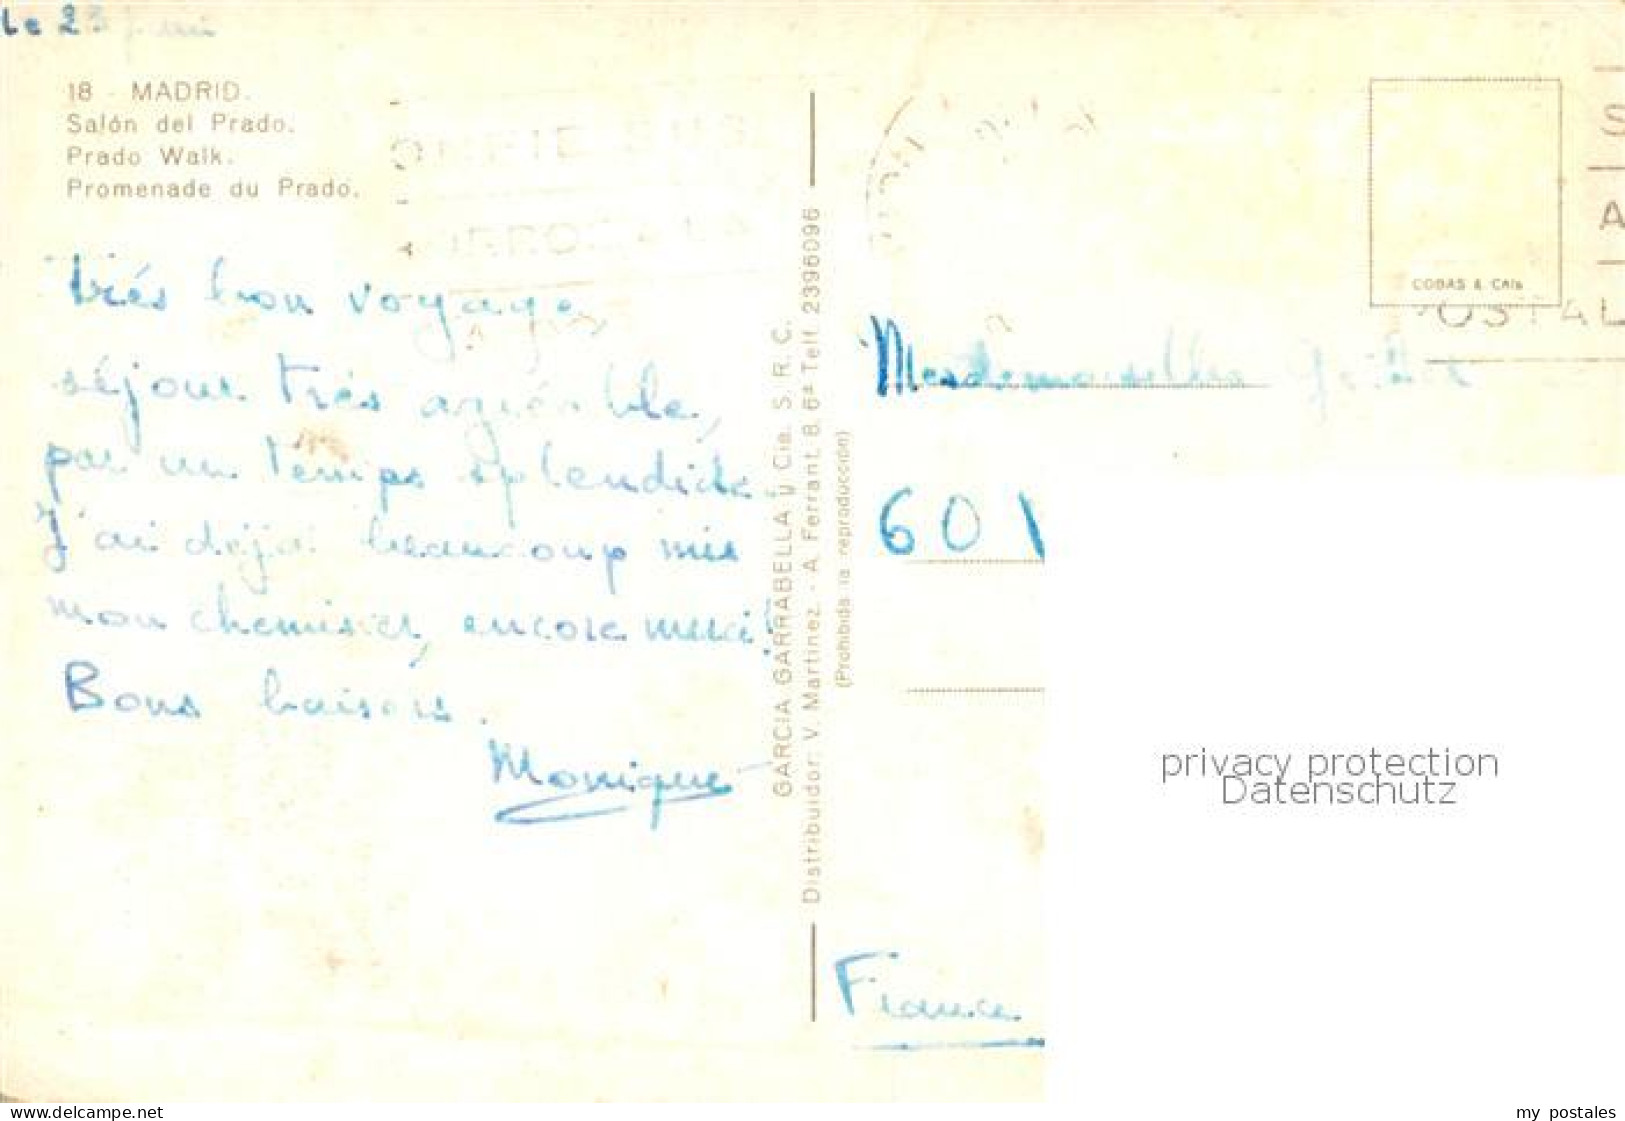 Le 23
18 - MADRID.
Salón del Prado.
Prado Walk.
Promenade du Prado.
très bon voyage,
séjour très agréable,
par un temps splendide.
J'ai déjà beaucoup mis
mon chemisier, encore merci!
Bons baisers.
Monique
GARCIA GARRABELLA y Cia. S. R. C.
Distribuidor: V. Martinez. - A. Ferrant, 8, 6ª Telf. 2396096
(Prohibida la reproducción)
COBAS & CAls
S
A
POSTAL
Mesdemoiselles
601
France
privacy protection
Datenschutz
www.delcampe.net
my_postales